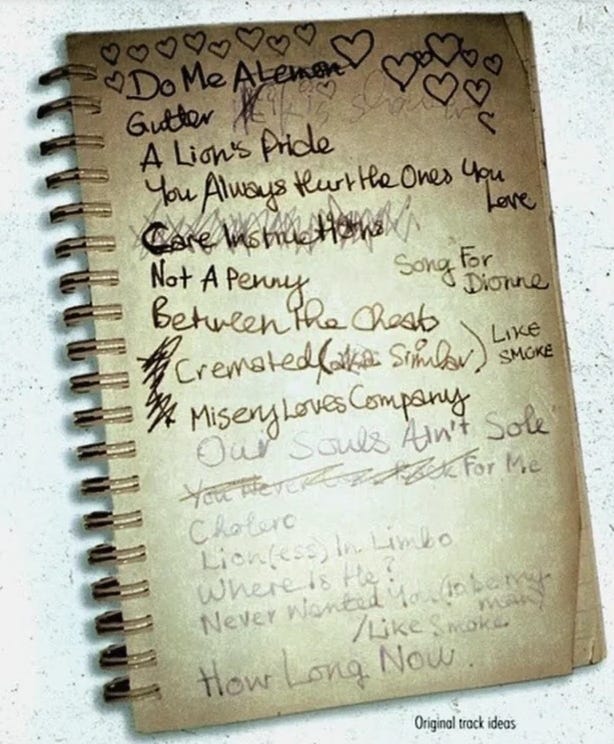 Do Me A Lemon
Gutter
A Lion's Pride
You Always Hurt the Ones You
Love
Care Instructions
Not A Penny
Song For
Dionne
Between the Cheats
Cremated (aka Similar)
LIKE
SMOKE
Misery Loves Company
Our Souls Ain't Sole
You Never For Me
Cholero
Lion(ess) In Limbo
Where Is He?
Never Wanted You (to be my
man)
/Like Smoke
How Long Now.
Original track ideas